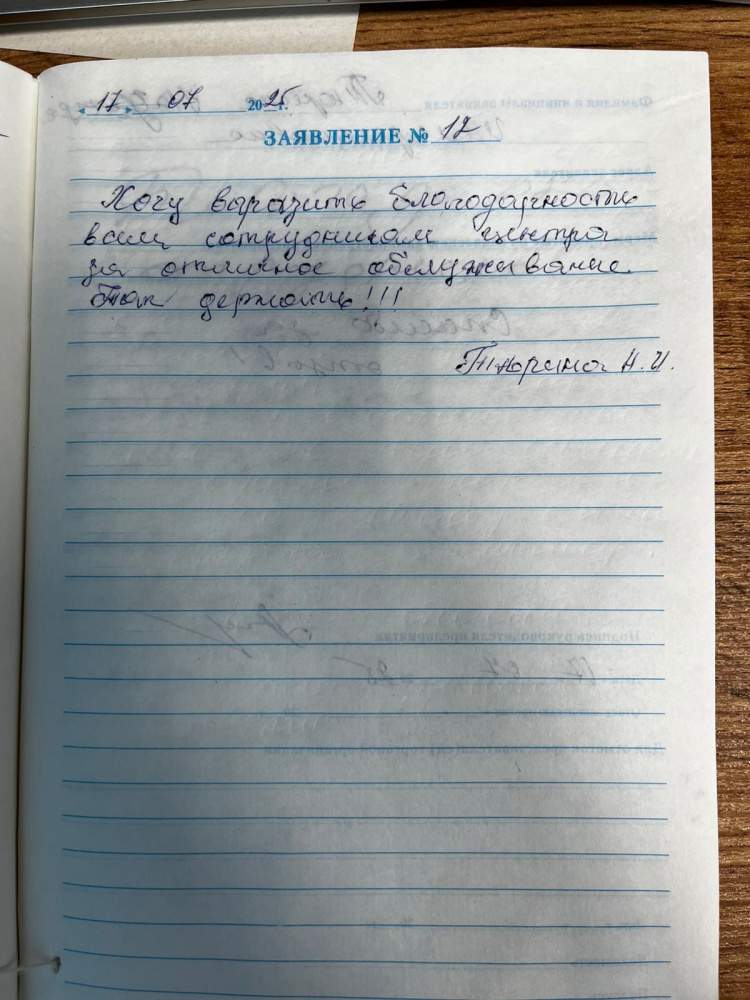 « 17 » 07 2025 г.
ЗАЯВЛЕНИЕ № 12
Хочу выразить благодарность
всем сотрудникам центра
за отличное обслуживание.
Так держать!!!
Тюрина Н.И.